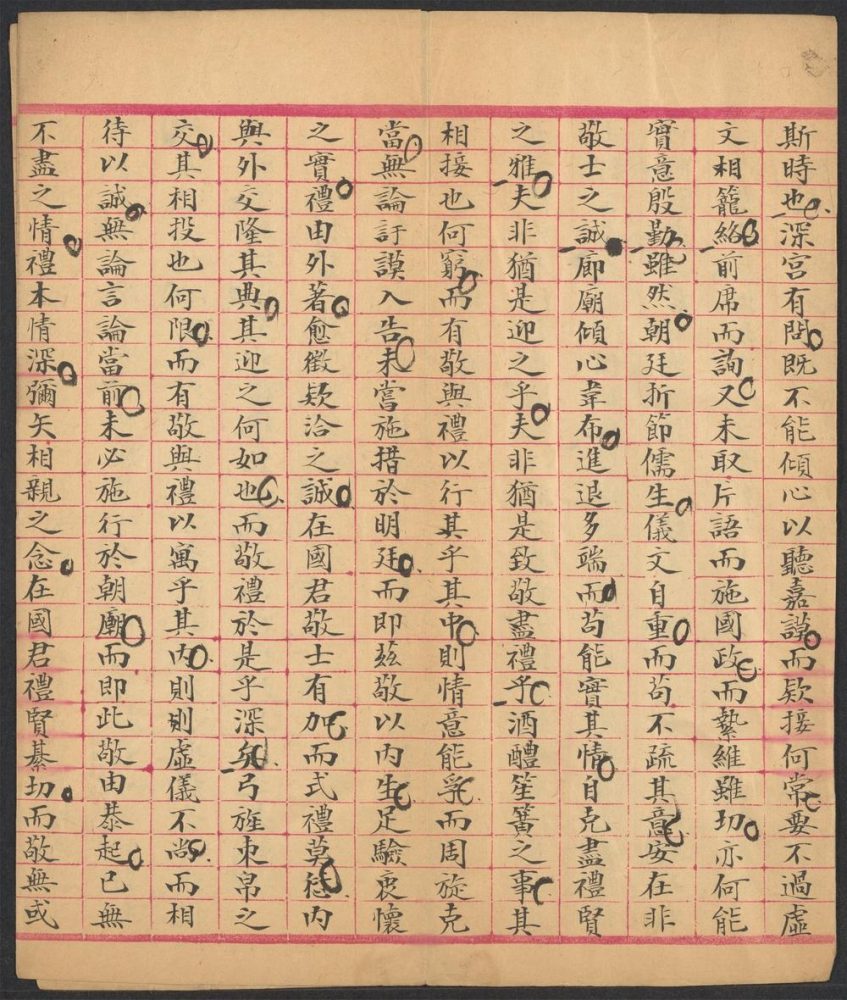 斯時也深宮有問既不能傾心以聽嘉謨而欵接何常要不過虛
文相籠絡前席而詢又未取片語而施國政而縶維雖切亦何能
實意殷勤雖然朝廷折節儒生儀文自重而苟不疏其意安在非
敬士之誠廊廟傾心韋布進退多端而苟能實其情自克盡禮賢
之雅夫非猶是迎之乎夫非猶是致敬盡禮乎酒醴笙簧之事其
相接也何窮而有敬與禮以行其乎其中則情意能孚而周旋克
當無論訏謨入告未嘗施措於明廷而即茲敬以內生足驗衷懷
之實禮由外著愈徵欵洽之誠在國君敬士有加而式禮莫愆內
與外交隆其典其迎之何如也而敬禮於是乎深矣弓旌束帛之
交其相投也何限而有敬與禮以寓乎其內則則虛儀不尚而相
待以誠無論言論當前未必施行於朝廟而即此敬由恭起已無
不盡之情禮本情深彌矢相親之念在國君禮賢綦切而敬無或